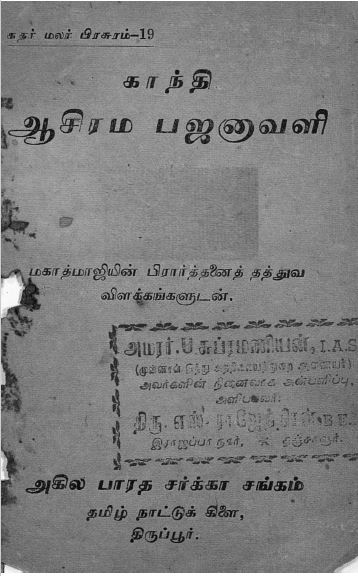 கதர் மலர் பிரசுரம்-19
காந்தி
ஆசிரம பஜனாவளி
மகாத்மாஜியின் பிரார்த்தனைத் தத்துவ
விளக்கங்களுடன்.
அமரர். U சுப்ரமணியன், I.A.S
(முன்னாள் இந்து அறநிலையத்துறை ஆணையர்)
அவர்களின் நினைவாக அன்பளிப்பு,
அளிப்பவர்:
திரு. எஸ். ராஜேந்திரன் B.E.,
இராஜப்பா நகர், தஞ்சாவூர்.
அகில பாரத சர்க்கா சங்கம்
தமிழ் நாட்டுக் கிளை,
திருப்பூர்.